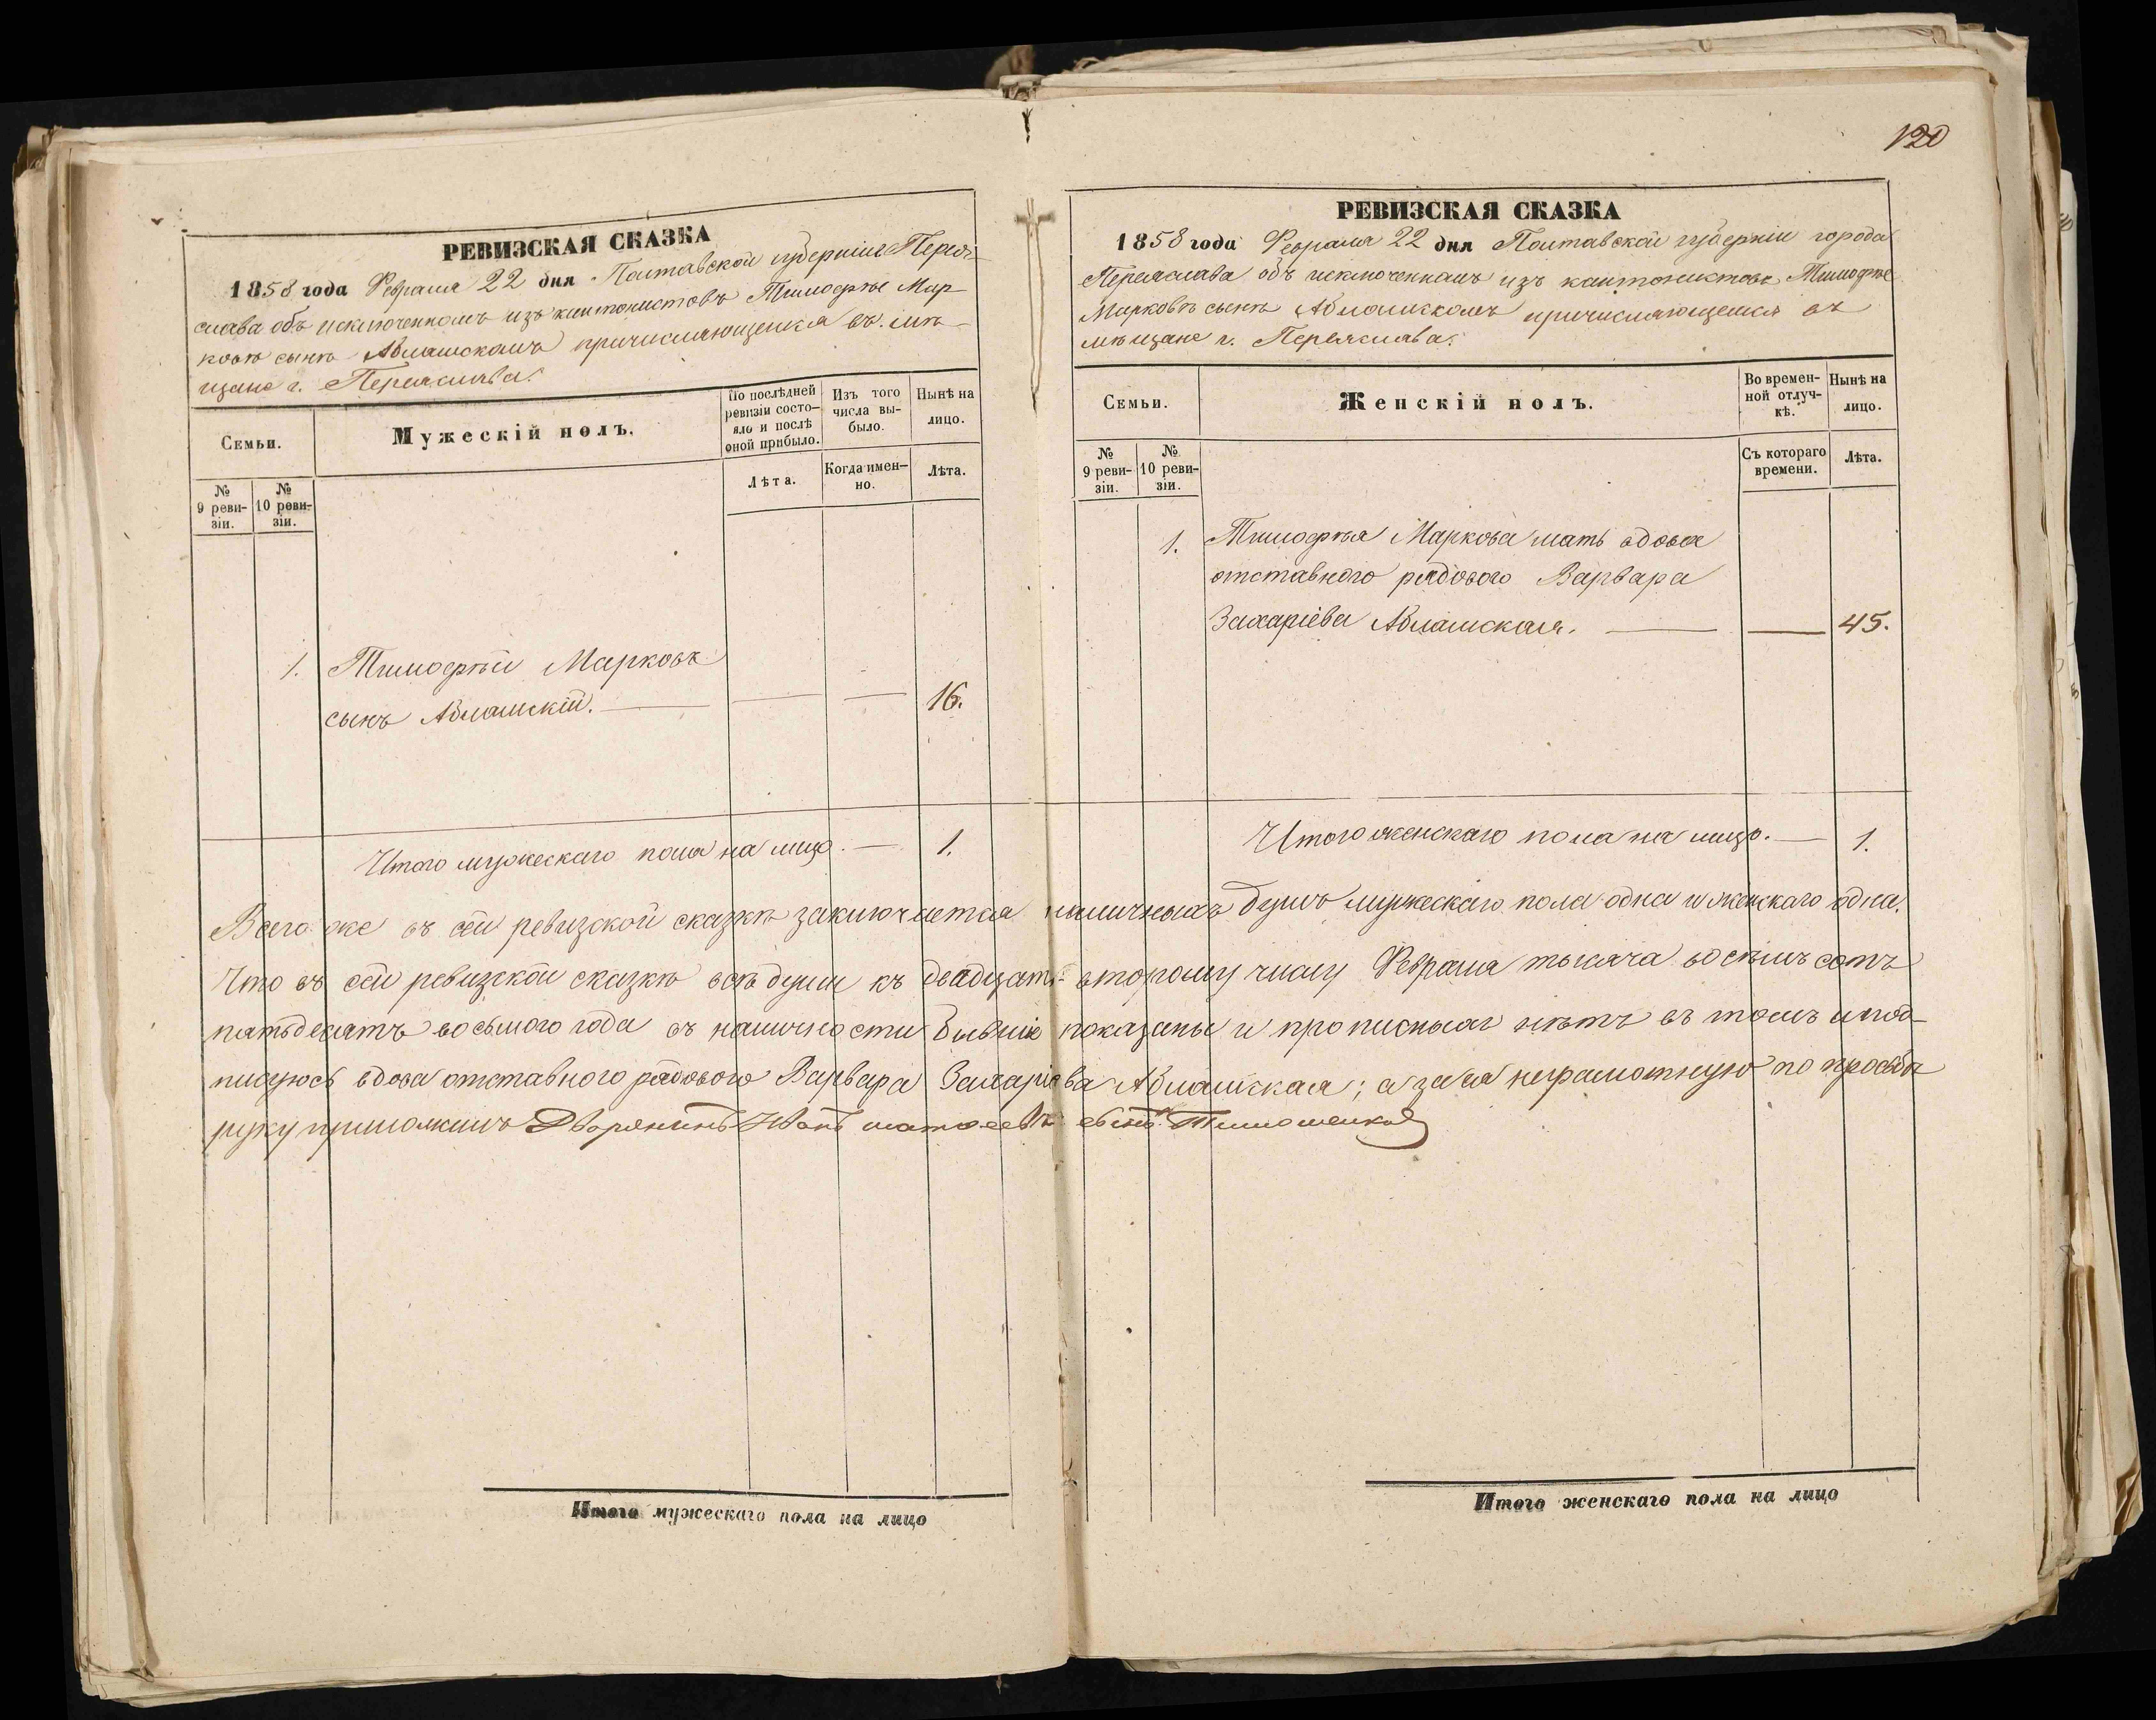 120
РЕВИЗСКАЯ СКАЗКА
1858 года Февраля 22 дня Полтавской губерніи Перея-
слава объ исключенномъ изъ кантонистовъ Тимофѣе Мар-
ковѣ сынѣ Абламскомъ причисляющемся въ мѣ-
щане г. Переяслава.
Семьи.
Мужескій полъ.
По послѣдней ревизіи состо-
яло и послѣ оной прибыло.
Изъ того числа вы-
было.
Нынѣ на лицо.
№ 9 реви-
зіи.
№ 10 реви-
зіи.
Лѣта.
Когда имен-
но.
Лѣта.
1. Тимофѣй Марковъ
сынъ Абламскій. — — — 16.
Итого мужескаго пола на лицо. — 1.
РЕВИЗСКАЯ СКАЗКА
1858 года Февраля 22 дня Полтавской губерніи города
Переяслава объ исключенномъ изъ кантонистовъ Тимофѣе
Марковѣ сынѣ Абламскомъ причисляющемся въ
мѣщане г. Переяслава.
Семьи.
Женскій полъ.
Во времен-
ной отлуч-
кѣ.
Нынѣ на лицо.
№ 9 реви-
зіи.
№ 10 реви-
зіи.
Съ котораго времени.
Лѣта.
1. Тимофѣя Маркова мать вдова
отставного рядового Варвара
Захаріева Абламская. — — 45.
Итого женскаго пола на лицо. — 1.
Всего же въ сей ревизской сказкѣ заключается наличныхъ душъ мужескаго пола одна и женскаго одна.
Что въ сей ревизской сказкѣ всѣ души къ двадцать второму числу Февраля тысяча восемъ сотъ
пятьдесятъ восьмого года въ наличности бывшіе показаны и прописныхъ нѣтъ въ томъ и под-
писуюсь вдова отставного рядового Варвара Захаріева Абламская; а за ея неграмотную по просьбѣ
руку приложилъ Дворянинъ сынъ Тимошенко
Итого мужескаго пола на лицо
Итого женскаго пола на лицо